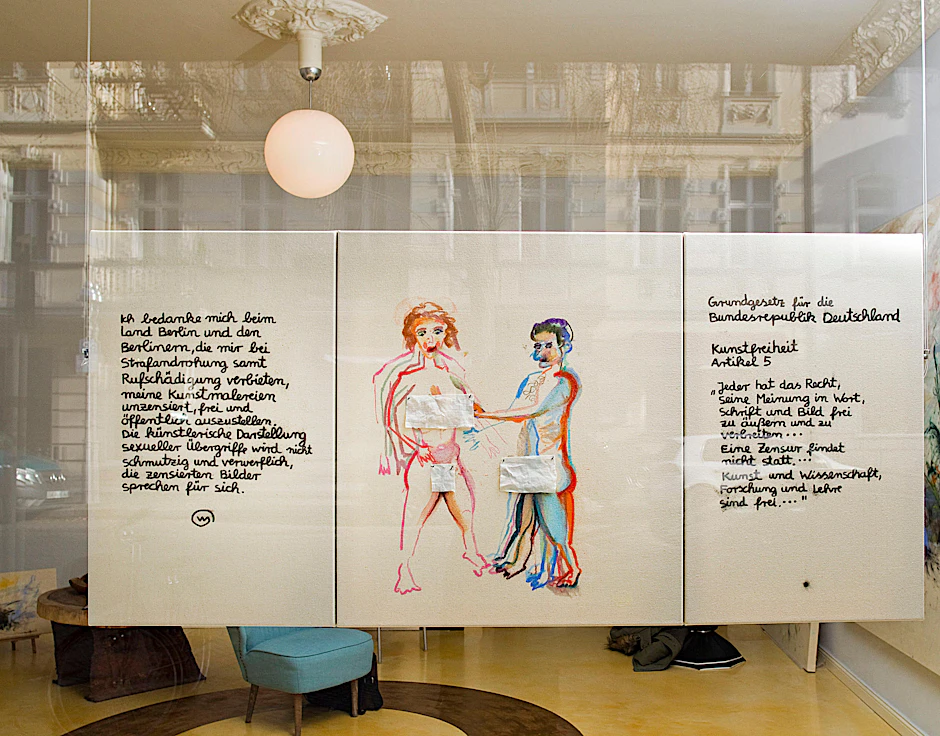 Ich bedanke mich beim
Land Berlin und den
Berlinern, die mir bei
Strafandrohung samt
Rufschädigung verbieten,
meine Kunstmalereien
unzensiert, frei und
öffentlich auszustellen.
Die künstlerische Darstellung
sexueller Übergriffe wird nicht
schmutzig und verwerflich,
die zensierten Bilder
sprechen für sich.
Grundgesetz für die
Bundesrepublik Deutschland
Kunstfreiheit
Artikel 5
„Jeder hat das Recht,
seine Meinung in Wort,
Schrift und Bild frei
zu äußern und zu
verbreiten...
Eine Zensur findet
nicht statt....
Kunst und Wissenschaft,
Forschung und Lehre
sind frei...."